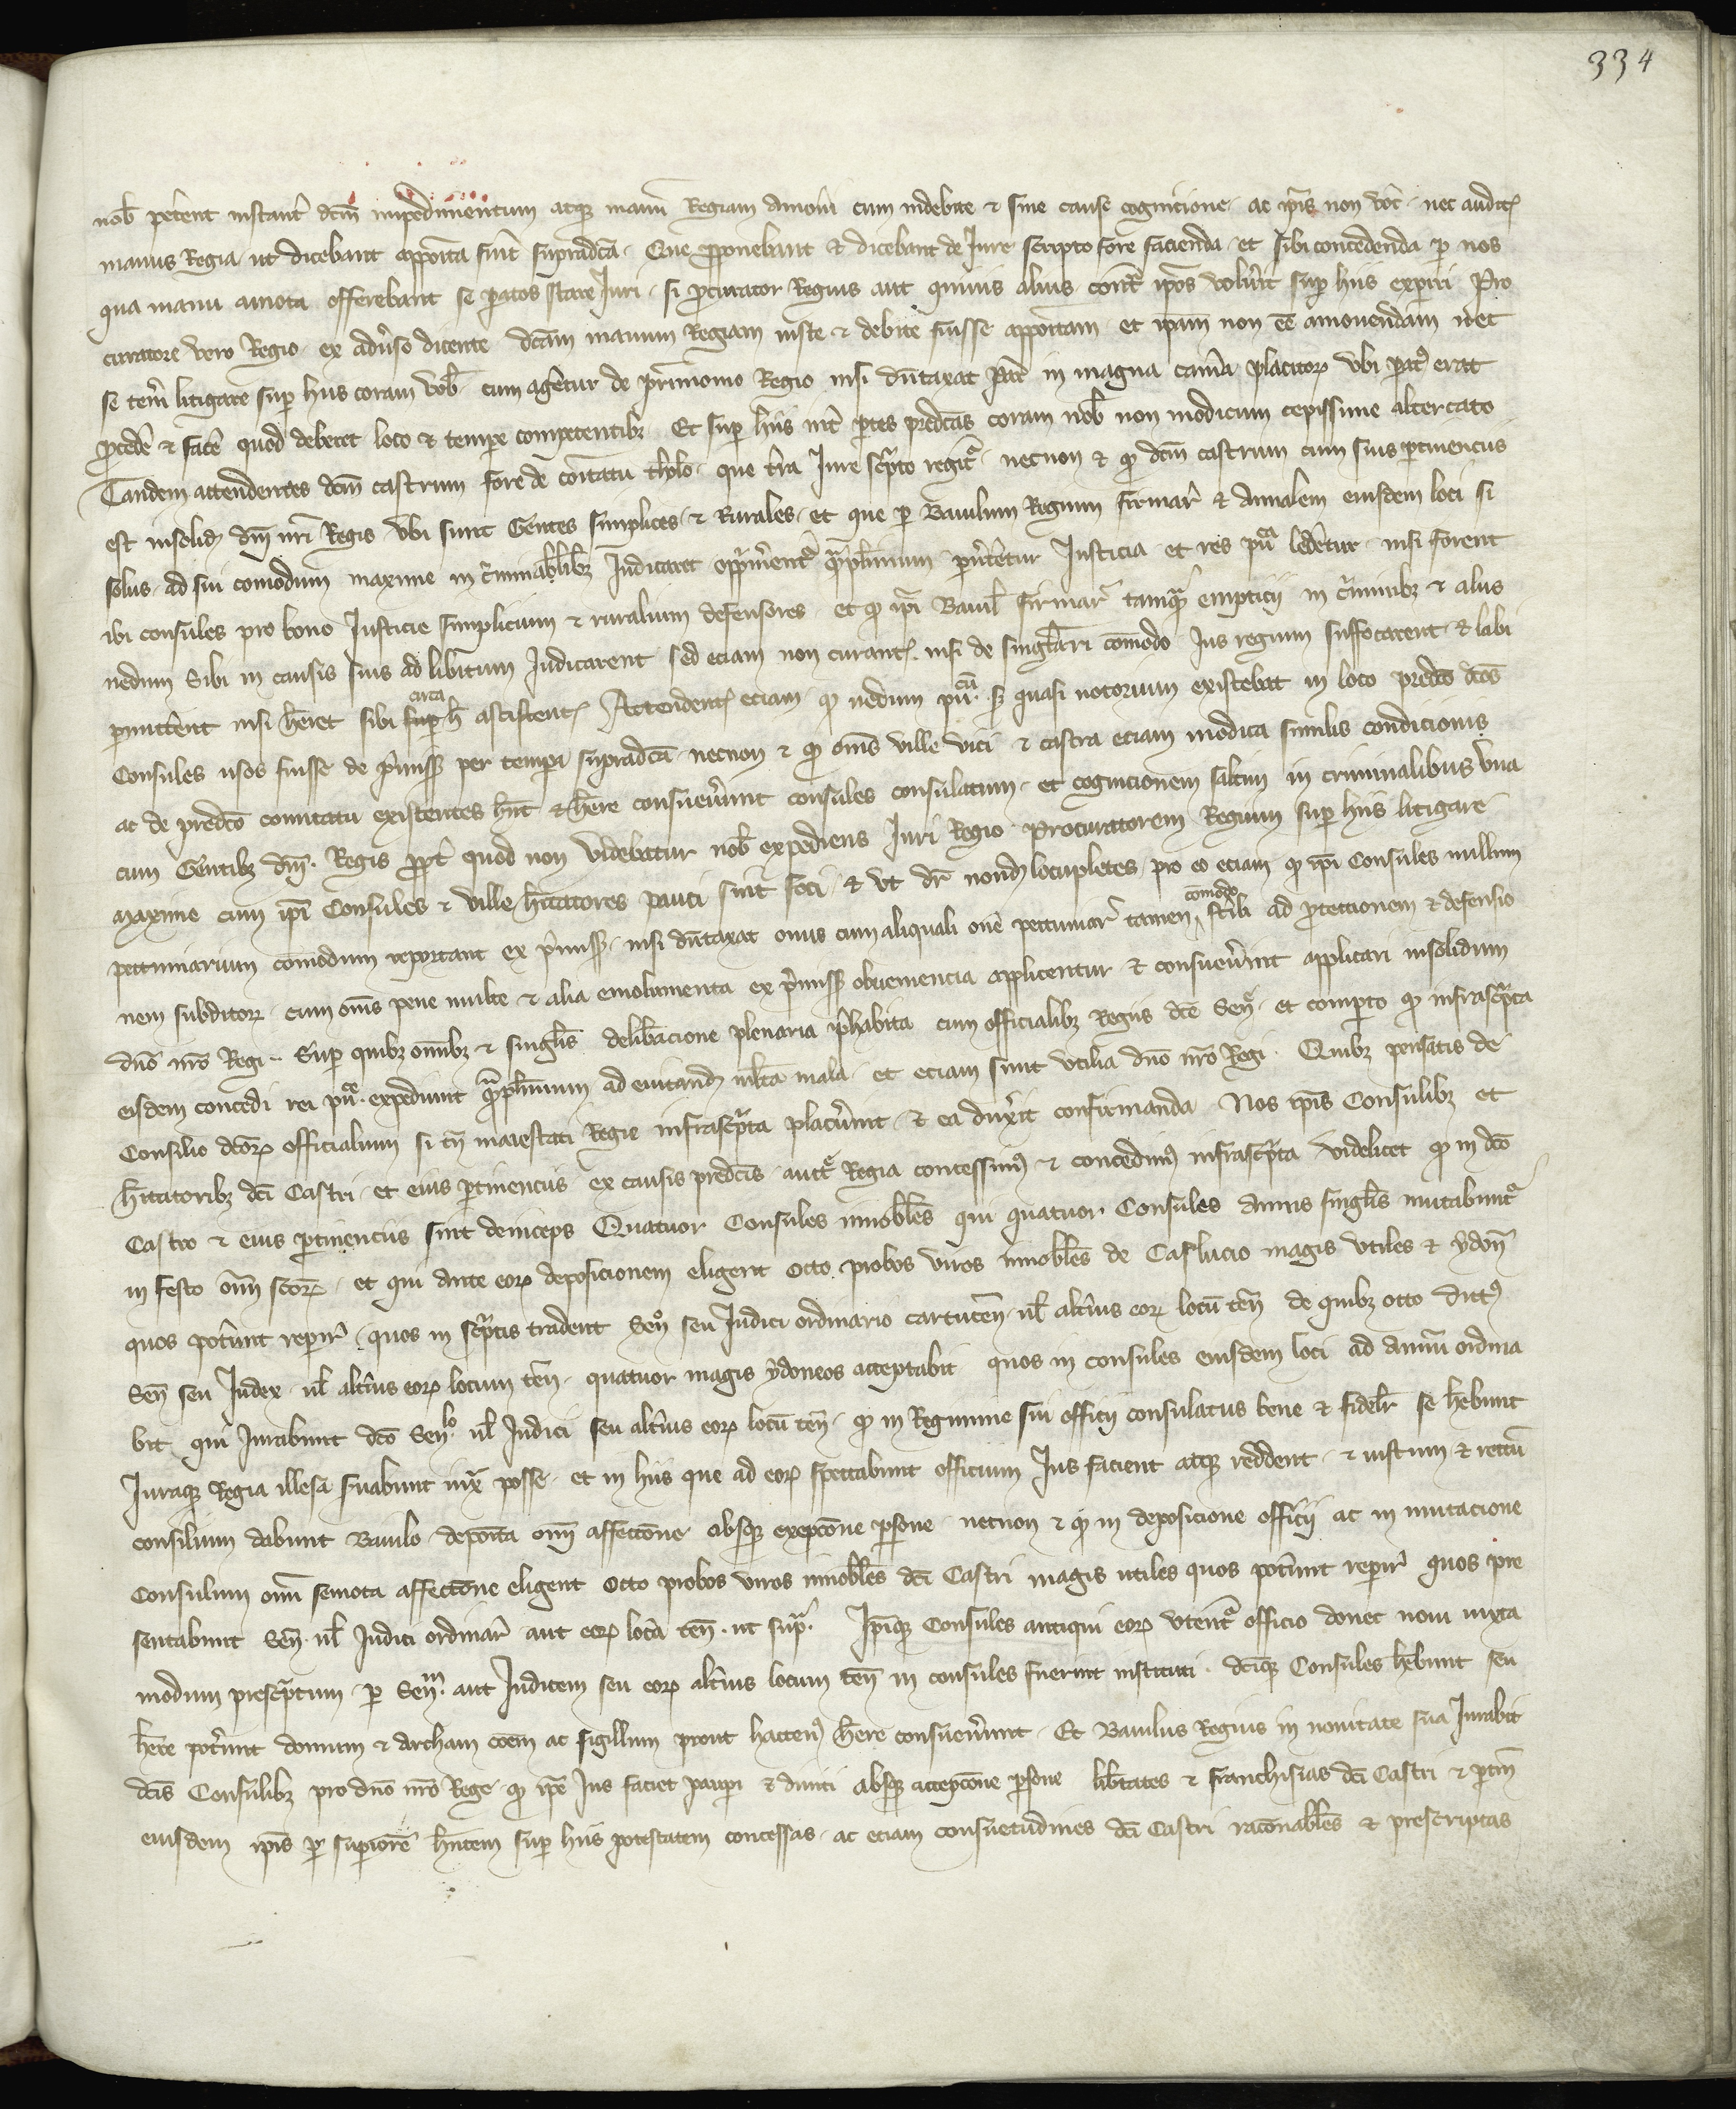 334
nob petent instant dcm impedimentum atqz manu Regiam amoui cum indebite & sine cause cognicione ac ipis non voc nec audit
manus Regia ut dicebant apposita fuit supradca Que proponebant et dicebant de Iure scripto fore facienda et sibi concedenda p nos
qua manu amota offerebant se patos stare Iuri si pcurator Regius aut quiuis alius cont ipos voluit sup hiis experiri Pro
curatore vero Regio ex aduso dicente dcam manum Regiam iuste & debite fuisse appositam et ipam non ee amouendam nec
se teni litigare sup hiis coram vob cum agetur de primonio Regio nisi dutaxat in magna cama placitor vbi pat erat
pcede & face quod deberet loco & tempe competentibz Et sup hiis int ptes predcas coram nob non modicum cepissime altercato
Tandem attendentes dcm castrum fore de comitatu tholo que tra Iure scpto regit necnon & q dcm castrum cum suis ptinenciis
est insolid dni nri Regis vbi sunt Gentes simplices & Rurales et que p Baiulum Regium firmar & Annalem eiusdem loci si
solus ad sui comodum maxime in criminalibz Iudicaret opprimerent qmplurimum puertetur Iusticia et res puca lederetur nisi forent
ibi consules pro bono Iusticie simplicium & ruralium defensores et q ipi Baiuli firmar tamq emptitii in criminibz & aliis
nedum sibi in causis suis ad libitum Iudicarent sed eciam non curant nisi de singulari comodo Ius regium suffocarent & labi
pmittent nisi heret sibi sup h circa ascistent Attendent eciam q nedum pu cu s quasi notorium existebat in loco predco dcos
Consules usos fuisse de pmiss per tempa supradca necnon & q oms ville vici & castra eciam modica similis condicionis
ac de predco comitatu existentes hnt & here consueuerunt consules consulatum et cognicionem saltim in criminalibus vna
cum Gentibz dni Regis ppt quod non videbatur nob expediens Iuri Regio Procuratorem Regium sup hiis litigare
maxime cum ipi Consules & ville hitatores pauci sint foci & vt dr nond locupletes pro eo eciam q ipi Consules nullum
pecuniarium comodum reportant ex pmiss nisi dutaxat onus cum aliquali one pecuniar tamen comodo ad ptectionem & defensio
nem subditor cum oms pene multe & alia emolumenta ex pmiss obueniencia applicentur & consueuerunt applicari insolidum
dno nro Regi Sup quibz omibz & singlis delibacione plenaria phabita cum officialibz Regiis dce Sen et compto q infrascpta
eisdem concedi rei puce expediunt qmplurimum ad euitand mlta mala et eciam sunt vtilia dno nro Regi Quibz pensatis de
Consilio dcor officialium si tn maiestati Regie infrascpta placuerint & ea duxit confirmanda Nos ipis Consulibz et
hitatoribz dci Castri et eius ptinenciis ex causis predcis auct Regia concessim & concedim infrascpta Videlicet q in dco
Castro & eius ptinenciis sint deinceps Quatuor Consules innobles qui quatuor Consules annis singlis mutabunt
in festo oim scor et qui ante eor deposicionem eligent octo probos viros innobles de Caslucio magis vtiles & ydon
quos potunt repir quos in scptis tradent Sen seu Iudici ordinario carcacen ul altius eor locu ten de quibz octo dict
Sen seu Iudex ul altius eor locum ten quatuor magis ydoneos acceptabit quos in consules eiusdem loci ad annu ordina
bit qui Iurabunt dco Senlo ul Iudici seu altius eor locu ten q in Regimine sui officii consulatus bene & fidelr se hebunt
Iuraqz Regia illesa suabunt iux posse et in hiis que ad eor spectabunt officium Ius facient atqz reddent & iustum & rectu
consilium dabunt Baiulo deposita omi affectone absqz excepcone psone necnon & q in deposicione officii ac in mutacione
Consulum omi semota affectone eligent octo probos viros innobles dci Castri magis utiles quos potunt repir quos pre
sentabunt Sen ul Iudici ordinar aut eor loca ten ut sup Ipiqz Consules antiqui eor vtent officio donec noui iuxta
modum prescptum p Senm aut Iudicem seu eor altius locum ten in consules fuerint instituti dciqz Consules hebunt seu
here potunt domum & Archam coem ac sigillum prout hacten here consueuerunt Et Baiulus Regius in nouitate sua Iurabit
dcis Consulibz pro dno nro Rege q ipe Ius faciet paupi & diuiti absqz accepcone psone libtates & franchisias dci Castri & ptin
eiusdem ipis p supiore hntem sup hiis potestatem concessas ac eciam consuetudines dci Castri raconabiles & prescriptas